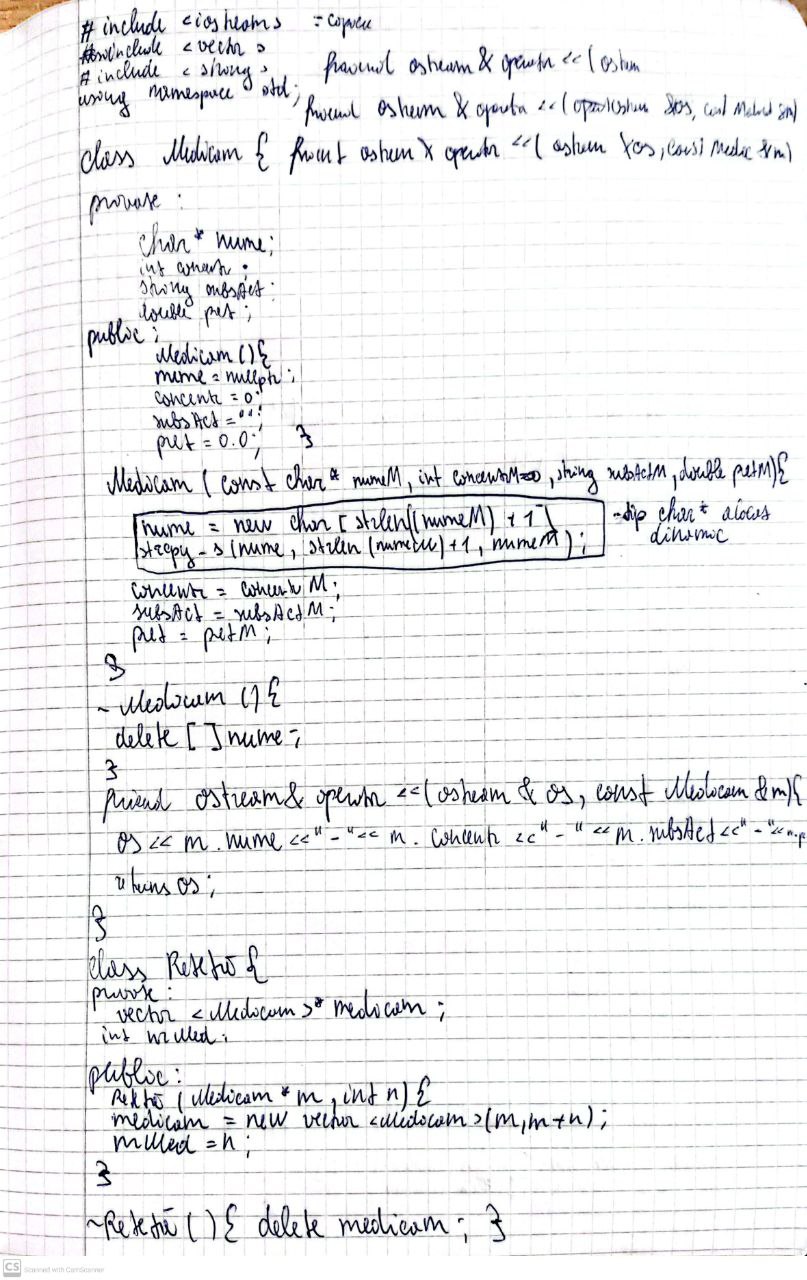 # include <iostream> = copiere
#include <vector>
# include <string> friend ostream & operator << (ostream
using namespace std; friend ostream & operator << ( &os, const &m)
class Medicam { friend ostream & operator << ( ostream &os, const Medic &m)
private :
char* nume;
int concentr;
string subsAct;
double pret ;
public :
Medicam () {
nume = nullptr ;
concentr = 0;
subsAct = "";
pret = 0.0; }
Medicam ( const char* numeM, int concentrM=0, string subsActM, double pretM){
nume = new char [ strlen((numeM) + 1 ] - tip char* alocat
strcpy - s (nume, strlen (numeM)+1, numeM) ; dinamic
concentr = concentr M ;
subsAct = subsAct M ;
pret = pretM ;
}
~ Medicam () {
delete [ ] nume ;
}
friend ostream& operator << ( ostream & os, const Medicam & m){
os << m. nume << " - " << m. concentr << " - " << m. subsAct << " - " << m.p
return os ;
}
class Rețetă {
private :
vector <Medicam >* medicam ;
int nrMed ;
public :
Rețetă ( Medicam * m , int n) {
medicam = new vector <Medicam >(m, m+n) ;
nrMed = n ;
}
~Rețetă () { delete medicam ; }
CS Scanned with CamScanner